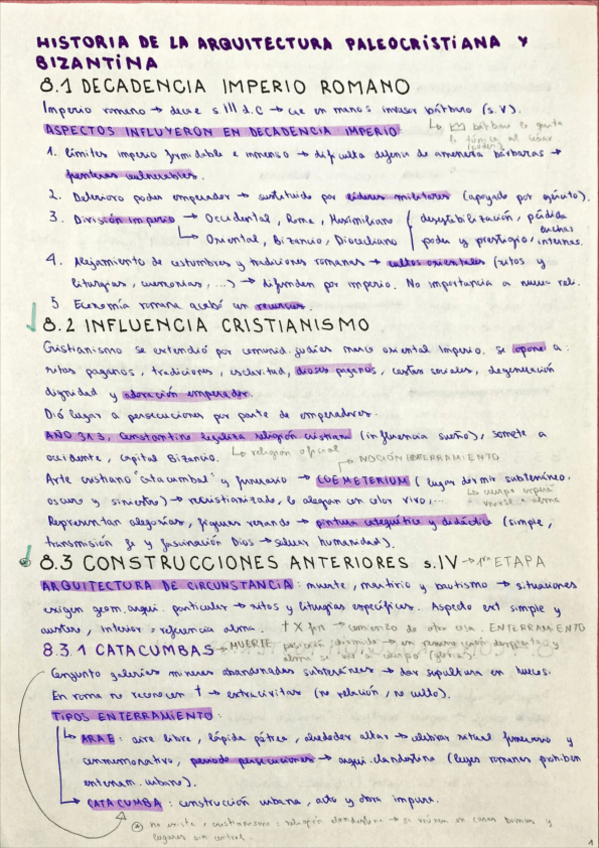 HISTORIA DE LA ARQUITECTURA PALEOCRISTIANA Y
BIZANTINA
8.1 DECADENCIA IMPERIO ROMANO
Imperio romano → decae s.III d.C → cae en manos invasor bárbaro (s.V).
ASPECTOS INFLUYERON EN DECADENCIA IMPERIO:
1. Límites imperio formidable e inmenso → dificulta defensa de amenaza bárbaras →
fronteras vulnerables.
2. Deterioro poder emperador → sustituido por líderes militares (apoyado por ejército).
3. División imperio → Occidental, Roma, Maximiliano { desestabilización, pérdida
↳ Oriental, Bizancio, Diocleciano poder y prestigio, luchas internas.
4. Alejamiento de costumbres y tradiciones romanas → cultos orientales (ritos y
liturgias, ceremonias, ...) → difunden por imperio. No importancia a nueva rel.
5. Economía romana acabó sin recursos.
8.2 INFLUENCIA CRISTIANISMO
Cristianismo se extendió por comunid. judías marco oriental Imperio. se opone a:
ritos paganos, tradiciones, esclavitud, dioses paganos, castas sociales, degeneración
dignidad y adoración emperador.
Dió lugar a persecuciones por parte de emperadores.
AÑO 313, Constantino legaliza religión cristiana (influencia sueño), somete a
occidente, capital Bizancio. ↳ religión oficial
→ NOCIÓN ENTERRAMIENTO
Arte cristiano "catacumbal" y funerario → COEMETERIUM (lugar dormir subterráneo.
oscuro y siniestro) → recristianizado, lo alegran con color vivo,...
Representan alegorías, figuras rezando → pintura catequética y didáctica (simple,
transmisión fe y fascinación Dios → salvar humanidad).
8.3 CONSTRUCCIONES ANTERIORES s.IV → 1ª ETAPA
ARQUITECTURA DE CIRCUNSTANCIA: muerte, martirio y bautismo → situaciones
exigen geom. arqui. particular → ritos y liturgias específicos. Aspecto ext simple y
austero, interior, referencia alma. † X fin → comienzo de otra vida. ENTERRAMIENTO
8.3.1 CATACUMBAS → MUERTE
Conjunto galerías mineras abandonadas subterráneas → dar sepultura en huecos.
En roma no reconocen † → extracivitas (no relación, no culto).
TIPOS ENTERRAMIENTO:
↳ ARAE: aire libre, lápida pétrea, alrededor altar → celebrar ritual funerario y
conmemorativo, periodo persecuciones → arqui. clandestina (leyes romanas prohíben
enterram. urbano).
↳ CATACUMBA: construcción urbana, acto y obra impura.
no existe, cristianismo: religión clandestina → se reúnen en casas
lugares sin control.
1